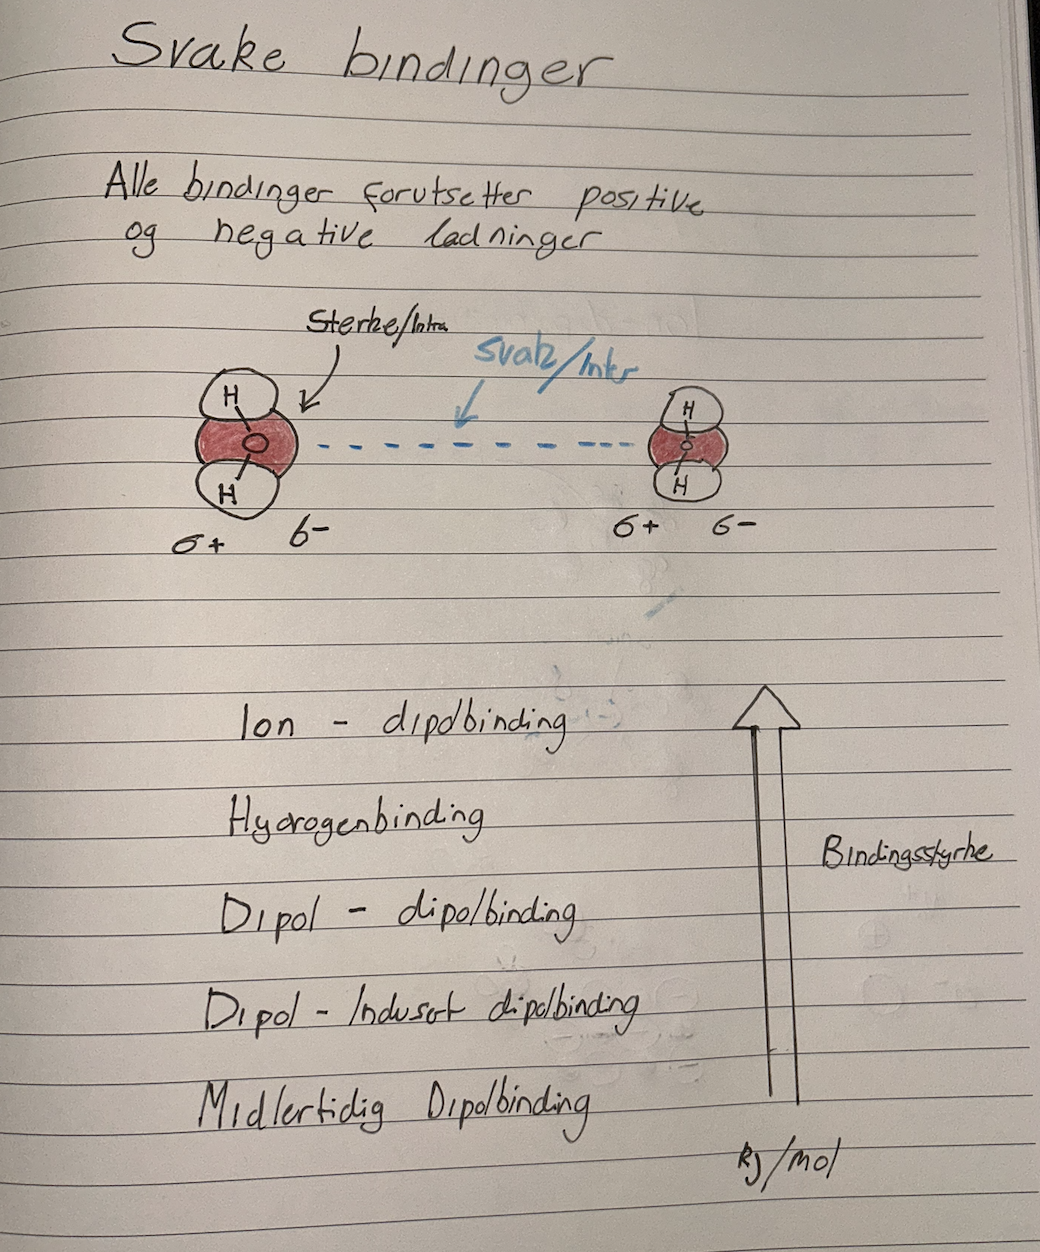 Svake bindinger
Alle bindinger forutsetter positive
og negative ladninger
Sterke/Intra
svak/Inter
H
O
H
H
O
H
δ+ δ-
δ+ δ-
Ion - dipolbinding
Hydrogenbinding
Bindingsstyrke
Dipol - dipolbinding
Dipol - Indusert dipolbinding
Midlertidig Dipolbinding
kj/mol